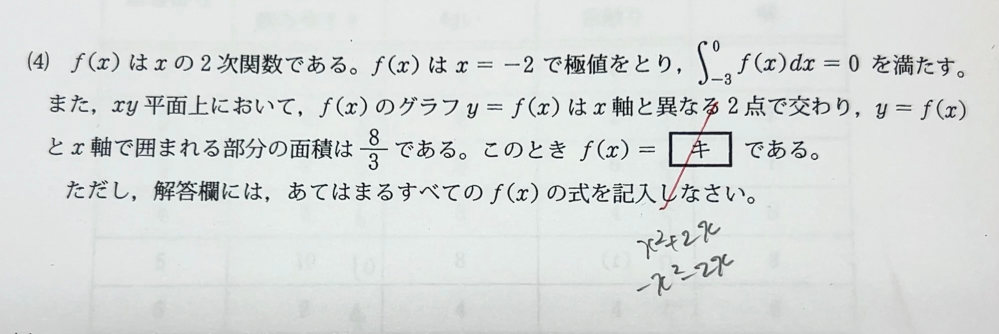 (4) f(x) は x の 2 次関数である。f(x) は x = −2 で極値をとり, ∫_{-3}^{0} f(x)dx = 0 を満たす。
また, xy 平面上において, f(x) のグラフ y = f(x) は x 軸と異なる 2 点で交わり, y = f(x)
と x 軸で囲まれる部分の面積は 8/3 である。このとき f(x) = キ である。
ただし, 解答欄には, あてはまるすべての f(x) の式を記入しなさい。
x²+2x
−x²−2x